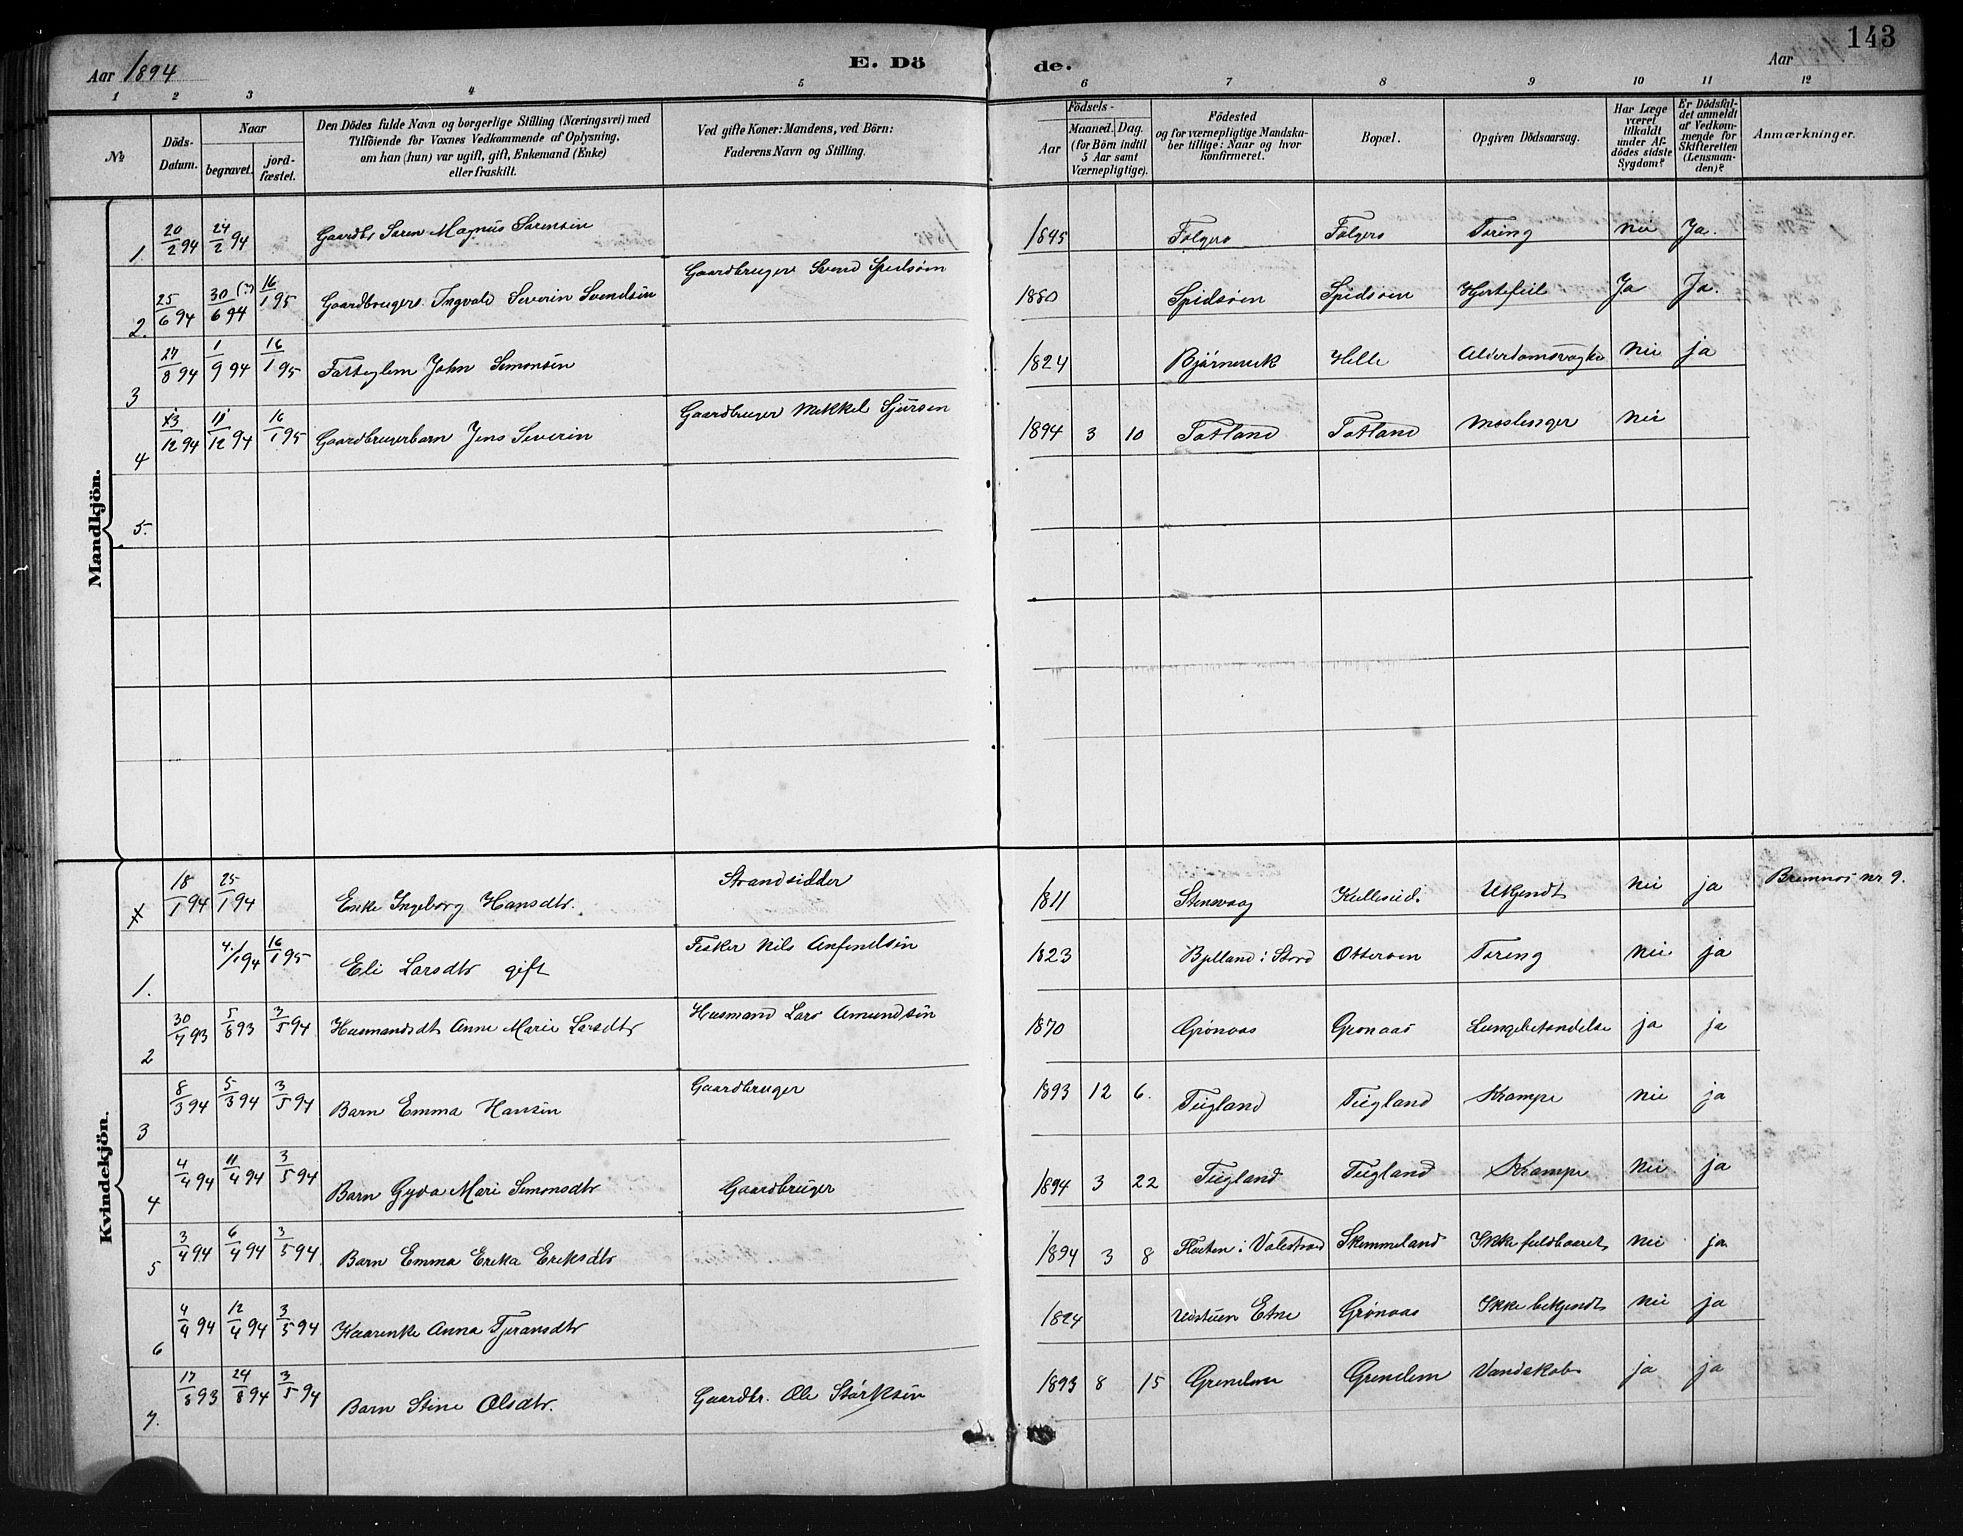 Aar 1894 E. Dö de. Aar 143
1 2 3 4 5 6 7 8 9 10 11 12
№ Döds-Datum. Naar begravet. jord-fæstet. Den Dödes fulde Navn og borgerlige Stilling (Næringsvei) med Tilföiende for Voxnes Vedkommende af Oplysning, om han (hun) var ugift, gift, Enkemand (Enke) eller fraskilt. Ved gifte Koner: Mandens, ved Börn: Faderens Navn og Stilling. Födsels- Aar Maaned. Dag. (for Börn indtil 5 Aar samt Værnepligtige). Födested og for værnepligtige Mandskaber tillige: Naar og hvor konfirmeret. Bopæl. Opgiven Dödsaarsag. Har Læge været tilkaldt under Afdödes sidste Sygdom? Er Dödsfaldet anmeldt af Vedkommende for Skifteretten (Lensmanden)? Anmærkninger.
Mandkjön.
1. 20/2 94 24/2 94 Gaardbr Søren Magnus Sørensen 1845 Folgerø Folgerø Tæring Nei Ja.
2. 25/6 94 30/6 94 (?) 16/1 95 Gaardbrugers. Ingvald Severin Svendsen Gaardbruger Svend Spidsøen 1880 Spidsøen Spidsøen Hjertefeil Ja Ja.
3 27/8 94 1/9 94 16/1 95 Fatteglem John Simonsen 1824 Bjørnevik Helle Alderdomssvaghe Nei ja
4 13/12 94 11/12 94 16/1 95 Gaardbrugerbarn Jens Severin Gaardbruger Mikkel Sjursen 1894 3 10 Totland Totland Meslinger Nei
5.
Kvindekjön.
18/1 94 25/1 94 Enke Ingeborg Hansdtr. Strandsidder 1811 Stensvaag Kulleseid. Ukjendt Nei ja Bremnes nr. 9.
1. 4/1 94 16/1 95 Eli Larsdtr gift Fisker Nils Anfindsen 1823 Bjelland i Stord Otterøen Tæring Nei ja
2 30/7 93 5/8 93 3/5 94 Husmandsdt Anne Marie Larsdtr Husmand Lars Amundsen 1870 Grønaas Grønaas Lungebetændelse ja ja
3 8/3 94 5/3 94 3/5 94 Barn Emma Hansen Gaardbruger 1893 12 6. Tiegland Tiegland Krampe Nei ja
4 4/4 94 11/4 94 3/5 94 Barn Gyda Mari Simonsdtr Gaardbruger 1894 3 22 Tiegland Tiegland Krampe Nei ja
5 3/4 94 6/4 94 3/5 94 Barn Emma Erika Eriksdtr 1894 3 8 i Valestrand Skimmeland Ikke fuldbaaret Nei ja
6 4/4 94 12/4 94 3/5 94 Kaarenke Anna Tjeransdtr 1824 Etne Grønaas Ikke bekjendt Nei ja
7. 17/8 93 24/8 94 3/5 94 Barn Stine Olsdtr. Gaardbr. Ole Størksen 1893 8 15 Grindem Grindem Vandskob ja ja